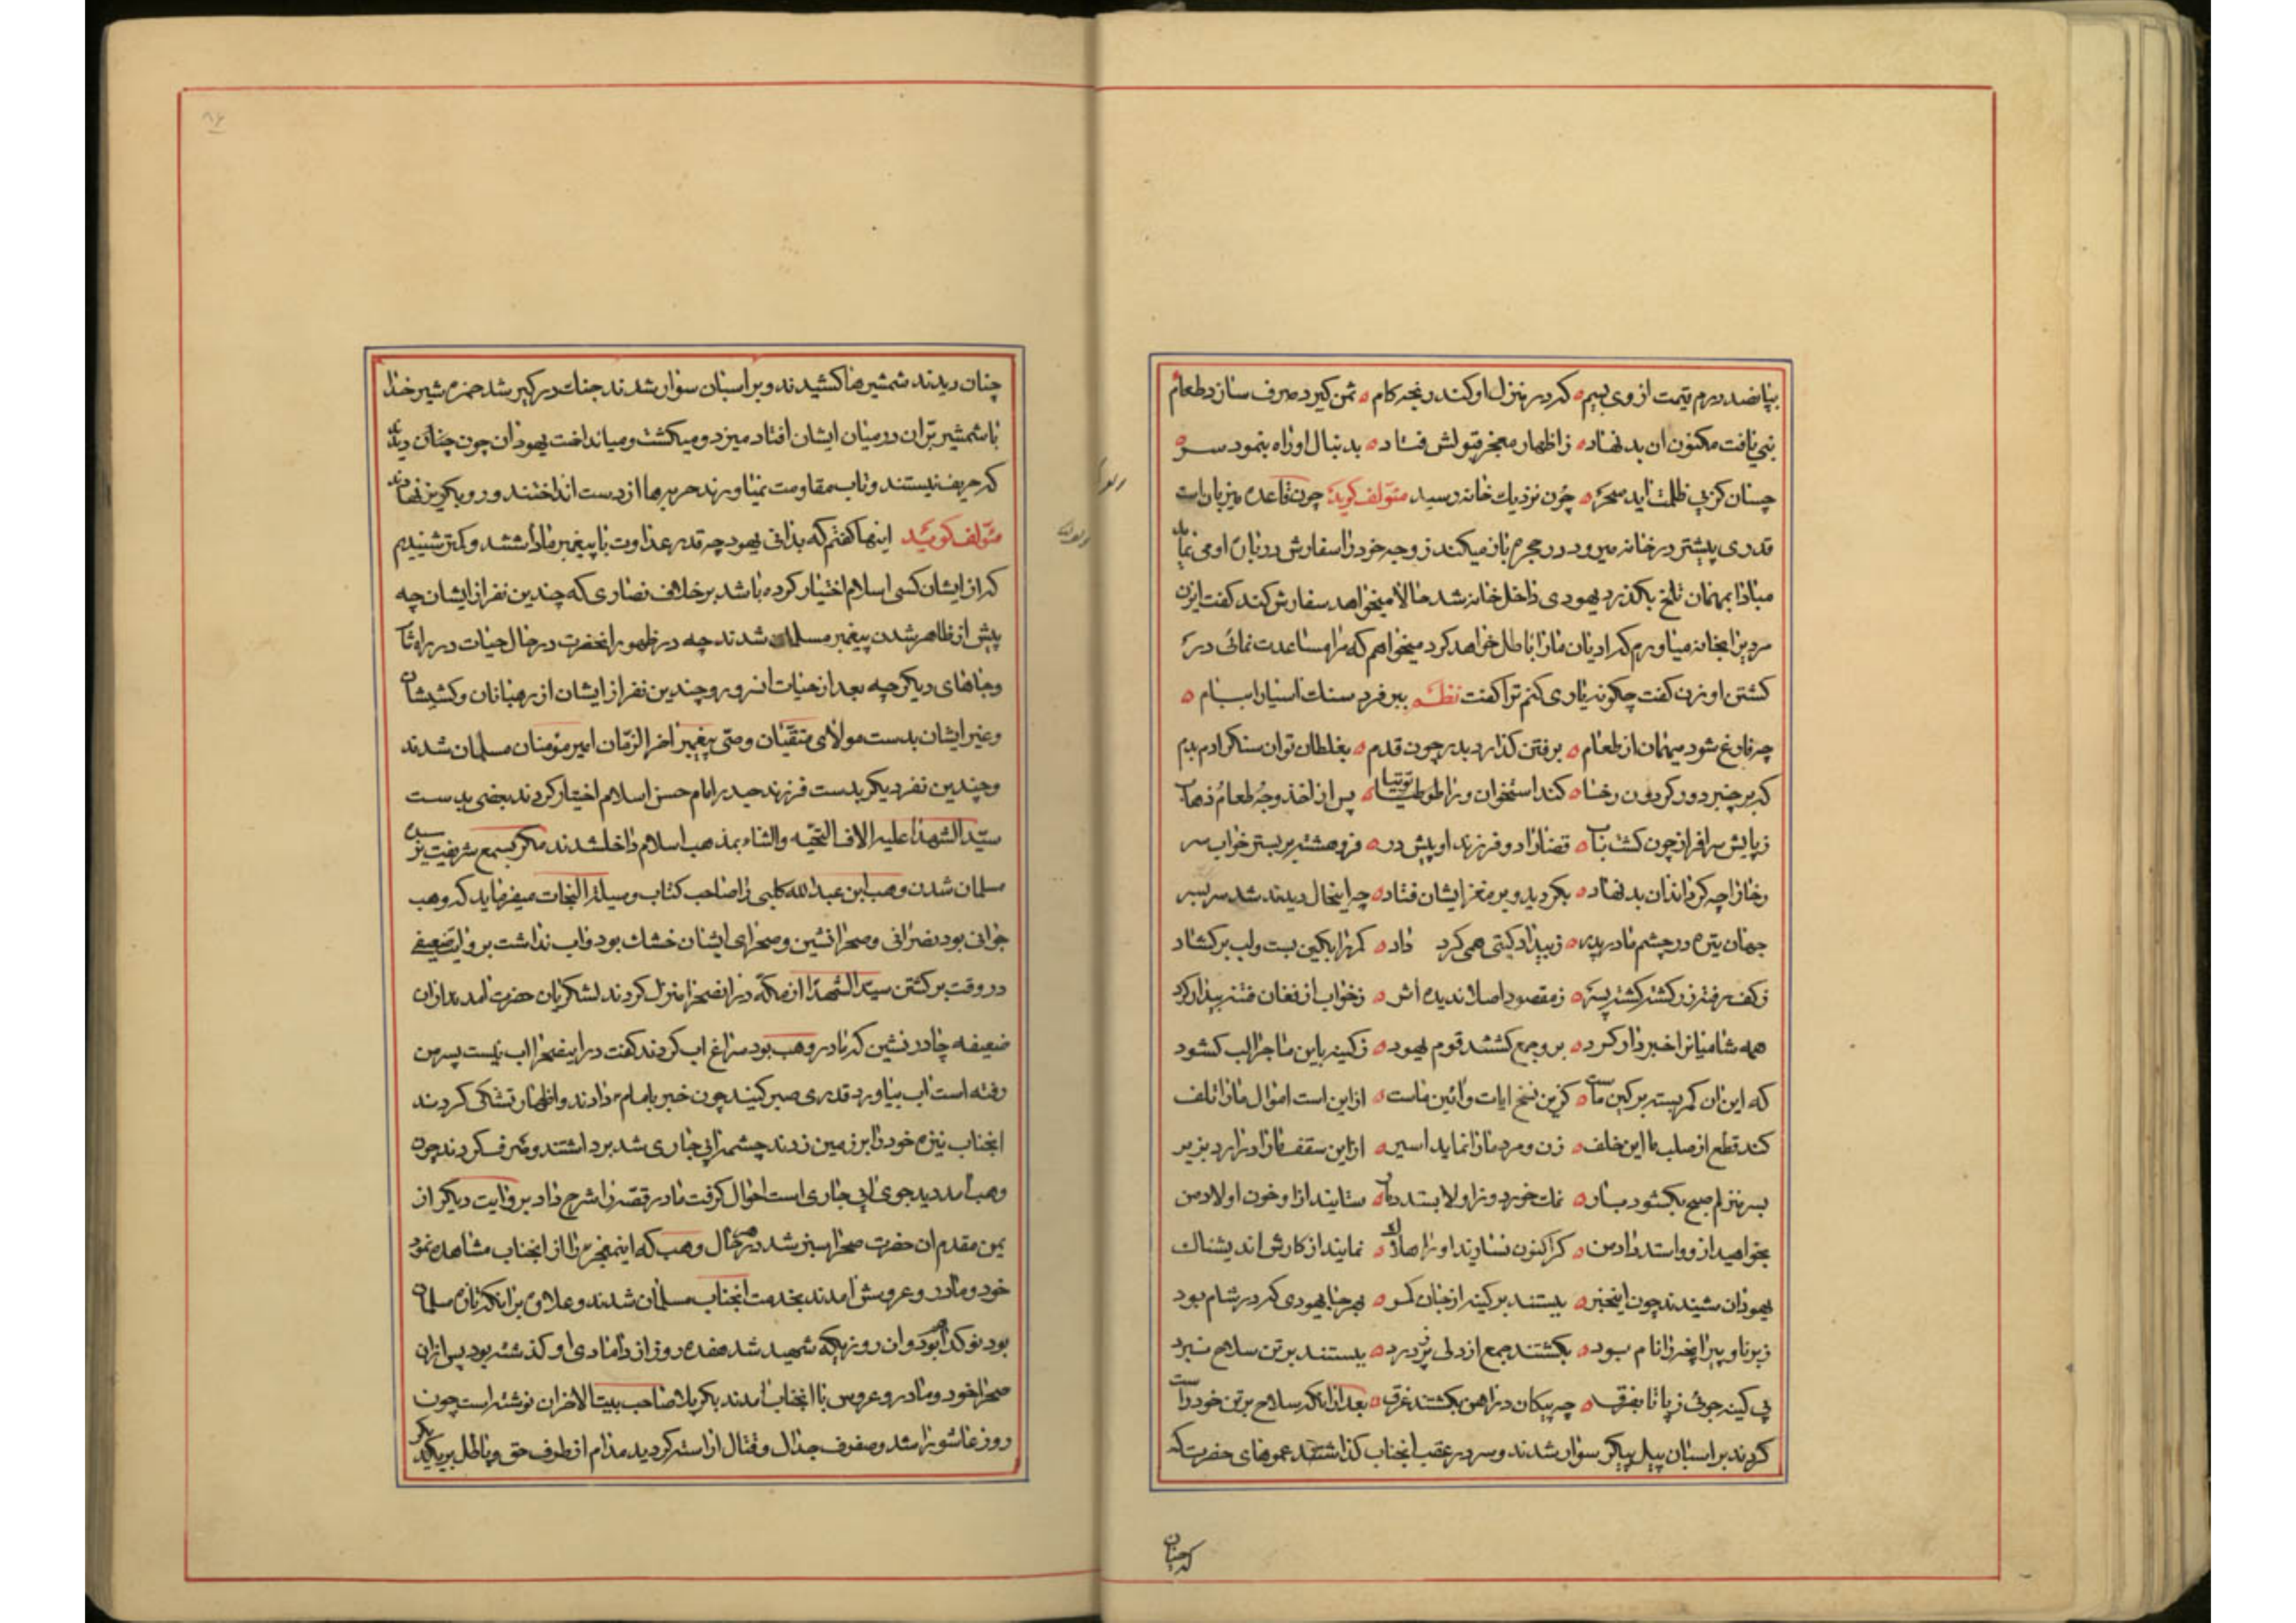 بپانصد درم قیمت از وی بسیم ه که در منزل او کند رنجه کام ه ثمن گیرد صرف سازد طعام
نبی یافت مکنون ان بد نهاد ه ز اظهار معجز قبولش فتاد ه بدنبال او راه بنمود سر ه
چنان کز پی ظلمت اید سحر ه چون نزدیک خانه رسید مؤلف گوید چون قاعده میزبان است
قدری پیشتر در خانه میرود در حجره باز میکند زوجه خود را سفارش در باب او می نماید
مبادا بمهمان تلخ بگذرد یهودی داخل خانه شد حالا میخواهد سفارش کند گفت ایزن
مردیرا بخانه میاورم که ادیان ما را باطل خواهد کرد میخواهم که مرا مساعدت نمائی در
کشتن او زن گفت چگونه یاری کنم ترا گفت نظم ببر فرد سنک اسیا را ببام ه
چه فارغ شود میهمان از طعام ه برفتن گذارد بدر چون قدم ه بغلطان توان سنک رادم بدم
که بر چنبر دور گردون رخا ه کند استخوان ورا طوطیا توتیا ه پس از اخذ وجه طعام
ز پایش سرافراز چون گشت ه قضا را دو فرزند او پیش در ه فروهشته بر بستر خواب سر
رخا را چه گرداند ان بد نهاد ه بگردید و بر مغز ایشان فتاد ه چه اینحال دیدند شد سربسر
جهان تیره در چشم مادر پدر ه ز بیداد گیتی همی کرد داد ه کمر را بکین بست و لب برگشاد
ز کف رفته زر گشته گشته پسر ه ز مقصود اصلا ندیده اثر ه ز خواب از فغان فتنه بیدار کرد
همه شامیانرا خبردار کرد ه برو جمع گشتند قوم یهود ه ز کینه باین ماجرا لب گشود
که این ان کمر بسته بر کین ماست ه کزین نسخ ایات و ائین ماست ه از این است اموال ما را تلف
کند قطع از صلب ما این خلف ه زن و مرد ما را نماید اسیر ه از این سقف ما را درارد بزیر
بسر منزلم صبح بگشود بار ه نمک خورد و نزاولا بستد ه ستایند از او خون اولاد من
بخواهید از وواستد داد من ه گر اکنون نسازند او را هلاک ه نمایند از کارش اندیشناک
یهودان شنیدند چون اینخبر ه ببستند بر کینه از جان کمر ه بهر جا یهودی که در شام بود
ز برنا و پیر انچه را نام بود ه بگشتند جمع از دلی پر ز درد ه ببستند بر تن سلاح نبرد
پی کینه جوئی ز پا تا بفرق ه چه پیکان در اهن بگشتند غرق ه بعد از انکه سلاح بر تن خود راست
کردند بر اسبان پیل پیکر سوار شدند و سر در عقب انجناب گذاشتند عموهای حضرت که
که چنان
چنان دیدند شمشیرها کشیدند و بر اسبان سوار شدند جنک درگیر شد حمزه شیر خدا
با شمشیر بران در میان ایشان افتاد میزد و میکشت و میانداخت یهودان چون چنان دیدند
که حریف نیستند و تاب مقاومت نمیاورند حربه ها از دست انداختند و رو بگریز نهادند
مؤلف گوید اینها گفتم که بدانی یهود چه قدر عداوت با پیغمبر ما داشتند و کمتر شنیدیم
که از ایشان کسی اسلام اختیار کرده باشد بر خلاف نصاری که چندین نفر از ایشان چه
پیش از ظاهر شدن پیغمبر مسلمان شدند چه در ظهور انحضرت در حال حیات در راه شام
و جاهای دیگر چه بعد از حیات انسرور چندین نفر از ایشان از رهبانان و کشیشان
و غیر ایشان بدست مولای متقیان وصی پیغمبر اخر الزمان امیر مؤمنان مسلمان شدند
و چندین نفر دیگر بدست فرزند حیدر امام حسن اسلام اختیار کردند بعضی بدست
سید الشهدا علیه الاف التحیه والثناء بمذهب اسلام داخل شدند مگر بسمع شریفت نرسیده
مسلمان شدن وهب ابن عبدالله کلبی را صاحب کتاب وسیلة النجات میفرماید که وهب
جوانی بود نصرانی و صحرانشین و صحرای ایشان خشک بود و اب نداشت بروایت ضعیفی
در وقت برگشتن سید الشهدا از مکه در انصحرا منزل کردند لشکریان حضرت امدند از ان
ضعیفه چادرنشین که مادر وهب بود سراغ اب کردند گفت در اینصحرا اب نیست پسر من
رفته است اب بیاورد قدری صبر کنید چون خبر بامام دادند و اظهار تشنگی کردند
انجناب نیزه خود را بر زمین زدند چشمه ابی جاری شد برداشتند و صرف کردند چون
وهب امد دید جوی ابی جاری است احوال گرفت مادر قصه را شرح داد بروایت دیگر از
یمن مقدم ان حضرت صحرا سبز شد در هر حال وهب که اینمعجزه را از انجناب مشاهده نمود
خود و مادر و عروسش امدند بخدمت انجناب مسلمان شدند و علاوه بر اینکه تازه مسلمان
بود نوکدا بود و ان روزیکه شهید شد هفده روز از دامادی او گذشته بود پس از ان
صحرا خود و مادر و عروس با انجناب امدند بکربلا صاحب بیت الاحزان نوشته است چون
روز عاشورا شد و صفوف جدال و قتال اراسته گردید مدام از طرف حق و باطل بر یکدیگر